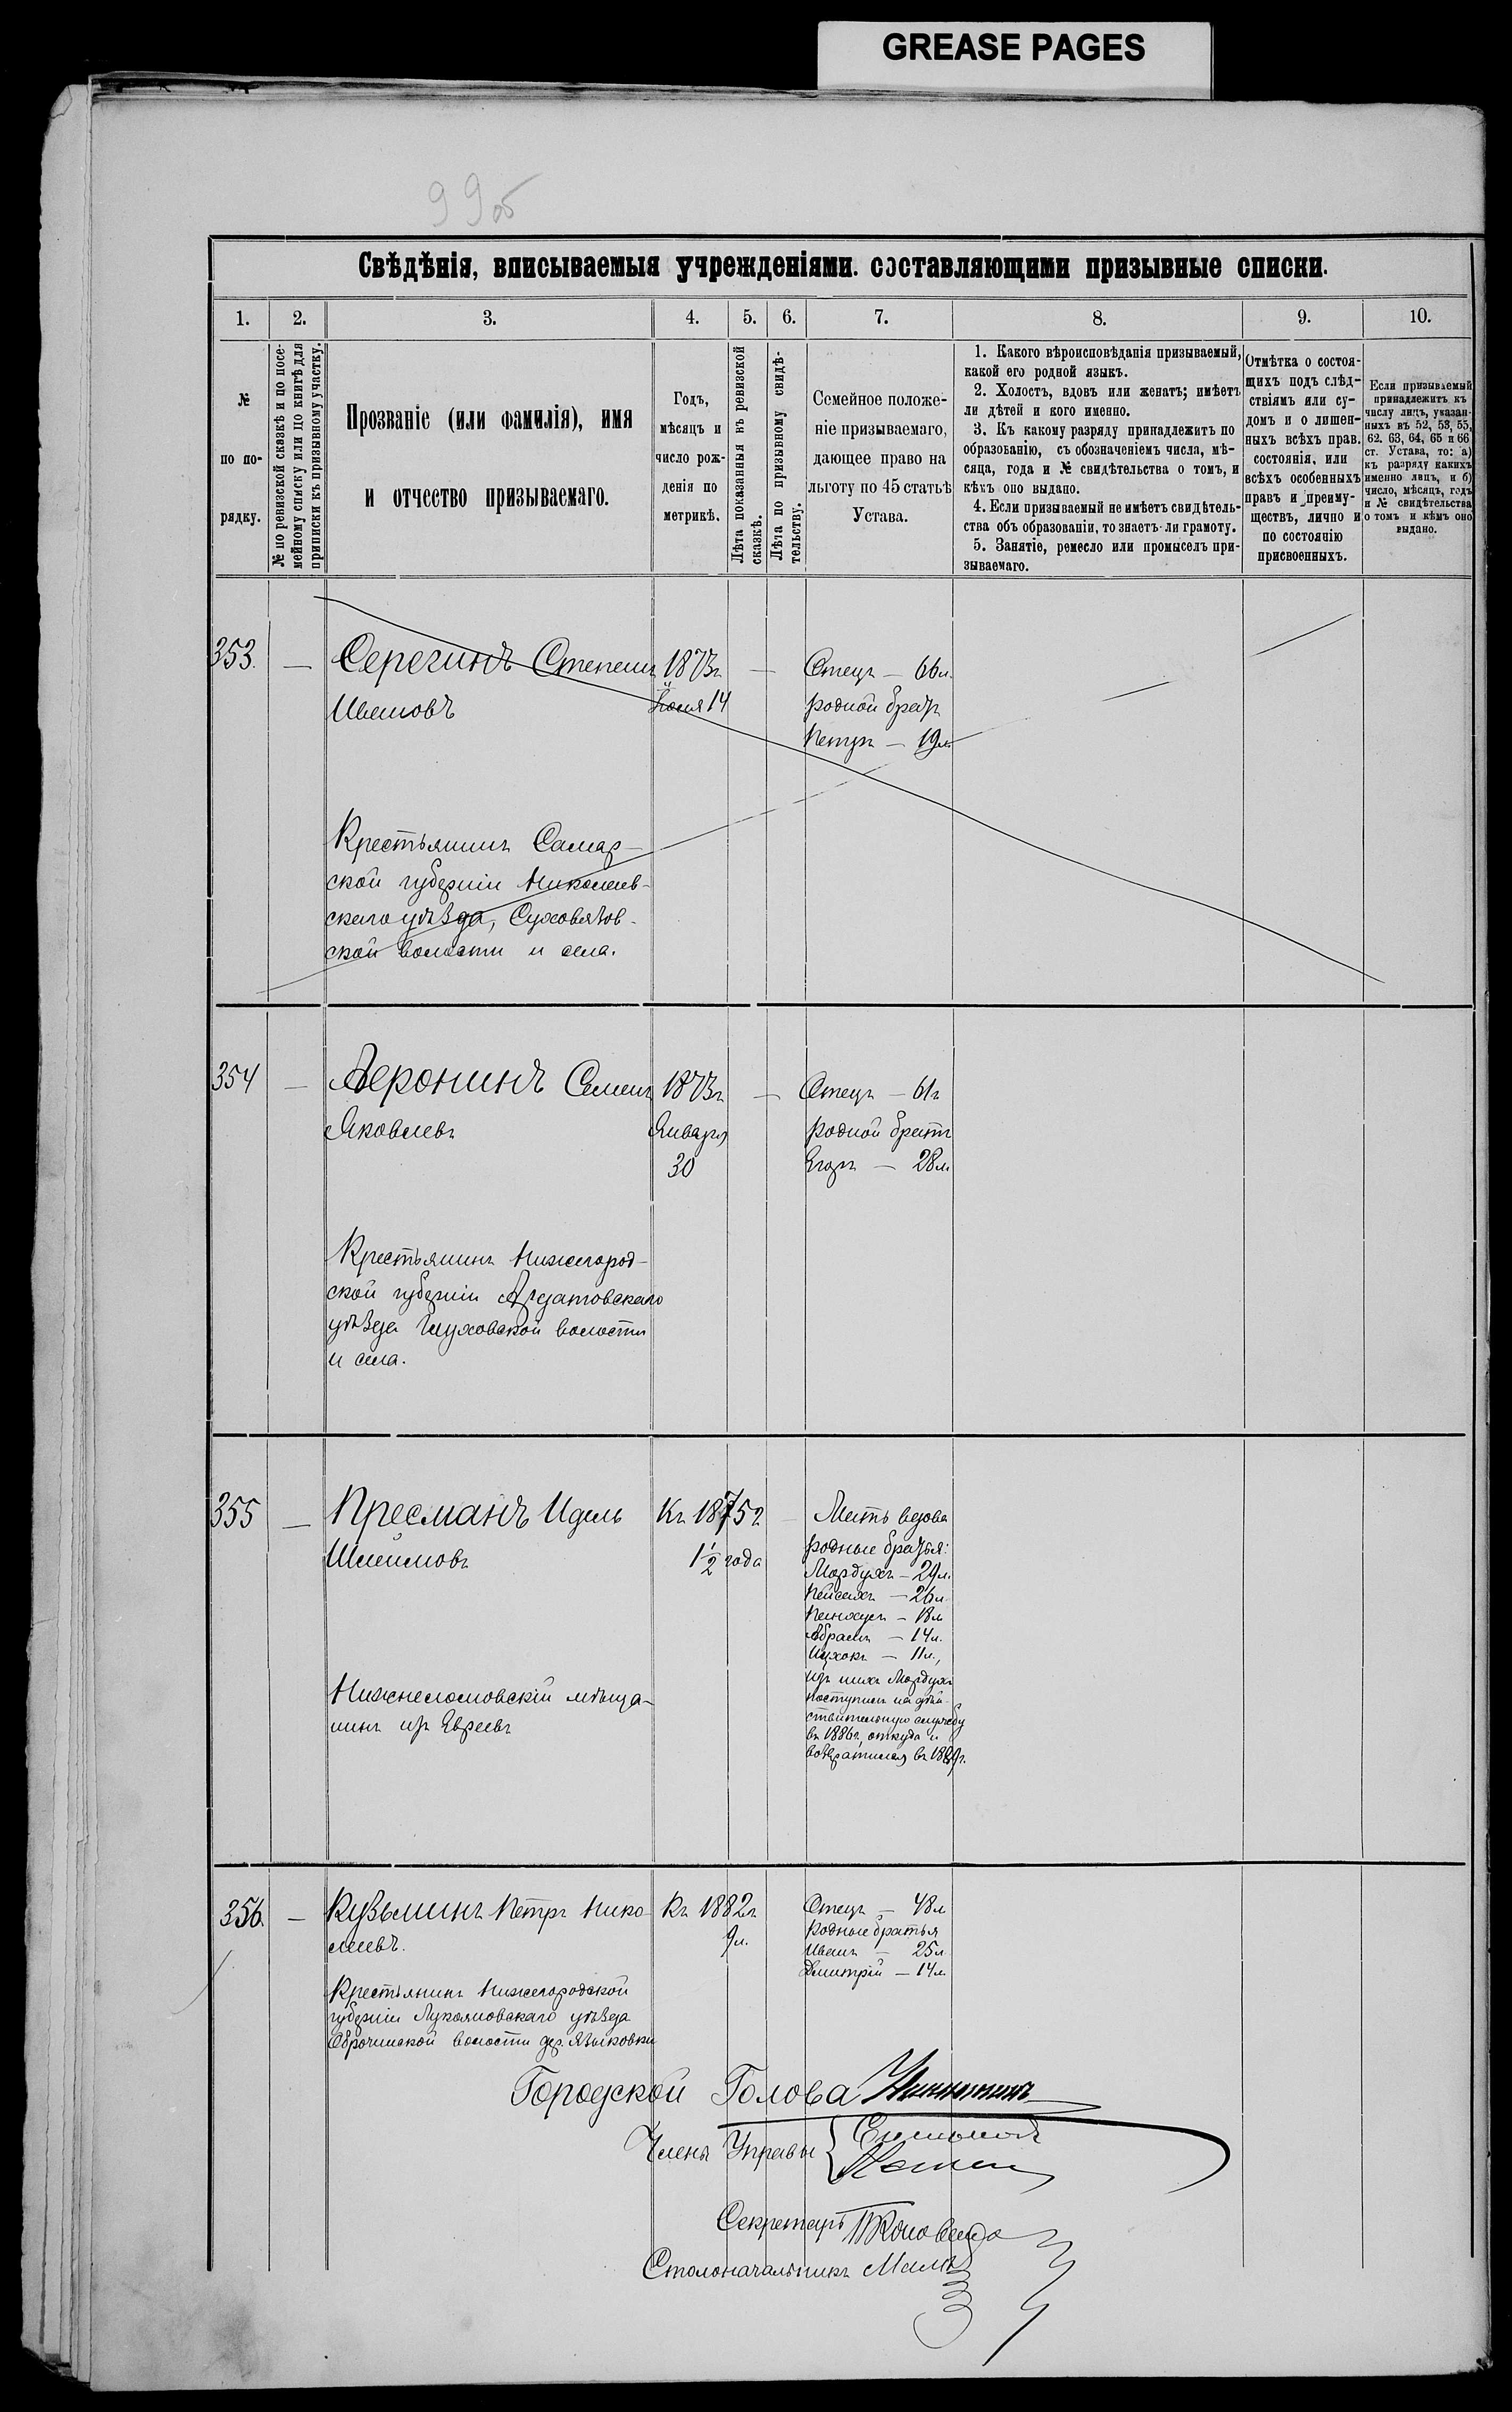 GREASE PAGES
99об
Свѣдѣнія, вписываемыя учрежденіями. составляющими призывные списки.
1. 2. 3. 4. 5. 6. 7. 8. 9. 10.
№
по по-
рядку.
№ по ревизской сказкѣ и по посе-
мейному списку или по книгѣ для
приписки къ призывному участку.
Прозваніе (или фамилія), имя
и отчество призываемаго.
Годъ,
мѣсяцъ и
число рож-
денія по
метрикѣ.
Лѣта показанныя въ ревизской
сказкѣ.
Лѣта по призывному свидѣ-
тельству.
Семейное положе-
ніе призываемаго,
дающее право на
льготу по 45 статьѣ
Устава.
1. Какого вѣроисповѣданія призываемый,
какой его родной языкъ.
2. Холостъ, вдовъ или женатъ; имѣетъ
ли дѣтей и кого именно.
3. Къ какому разряду принадлежитъ по
образованію, съ обозначеніемъ числа, мѣ-
сяца, года и № свидѣтельства о томъ, и
кѣмъ оно выдано.
4. Если призываемый не имѣетъ свидѣтель-
ства объ образованіи, то знаетъ-ли грамоту.
5. Занятіе, ремесло или промыселъ при-
зываемаго.
Отмѣтка о состоя-
щихъ подъ слѣд-
ствіямъ или су-
домъ и о лишен-
ныхъ всѣхъ прав.
состоянія, или
всѣхъ особенныхъ
правъ и преиму-
ществъ, лично и
по состоянію
присвоенныхъ.
Если призываемый
принадлежитъ къ
числу лицъ, указан-
ныхъ въ 52, 53, 55,
62. 63, 64, 65 и 66
ст. Устава, то: а)
къ разряду какихъ
именно лицъ, и б)
число, мѣсяцъ, годъ
и № свидѣтельства
о томъ и кѣмъ оно
выдано.
353. — Серегинъ Степанъ 1873г. — Отецъ — 66л.
Ивановъ Іюля 14 родной братъ
Петръ — 19л.
Крестьянинъ Самар-
ской губерніи Николаев-
скаго уѣзда, Суховязов-
ской волости и села.
354 — Аеронинъ Семенъ 1873г. — Отецъ — 61г
Яковлевъ Января родной братъ
30 Егоръ — 28л.
Крестьянинъ Нижегород-
ской губерніи Ардатовскаго
уѣзда Глуховской волости
и села.
355 — Пресманъ Идель Къ 1875г. — Мать вдова
Шлеймовъ 1½ года родные братья:
Мордухъ — 29л.
Пейсахъ — 26л.
Пинхусъ — 18л.
Абрамъ — 14л.
Ицхокъ — 11л.,
изъ нихъ Мордухъ
поступилъ на дѣй-
ствительную службу
въ 1886г., откуда и
возвратился въ 1889г.
Нижнеломовскій мѣща-
нинъ изъ Евреевъ
356. — Кузьминъ Петръ Нико- Къ 1882г. Отецъ — 48л.
лаевъ. 9л. родные братья
Иванъ — 25л.
Дмитрій — 14л.
Крестьянинъ Нижегородской
губерніи Лукояновскаго уѣзда
Оброчинской волости дер. Языковки
Городской Голова
Члены Управы
Секретарь
Столоначальникъ